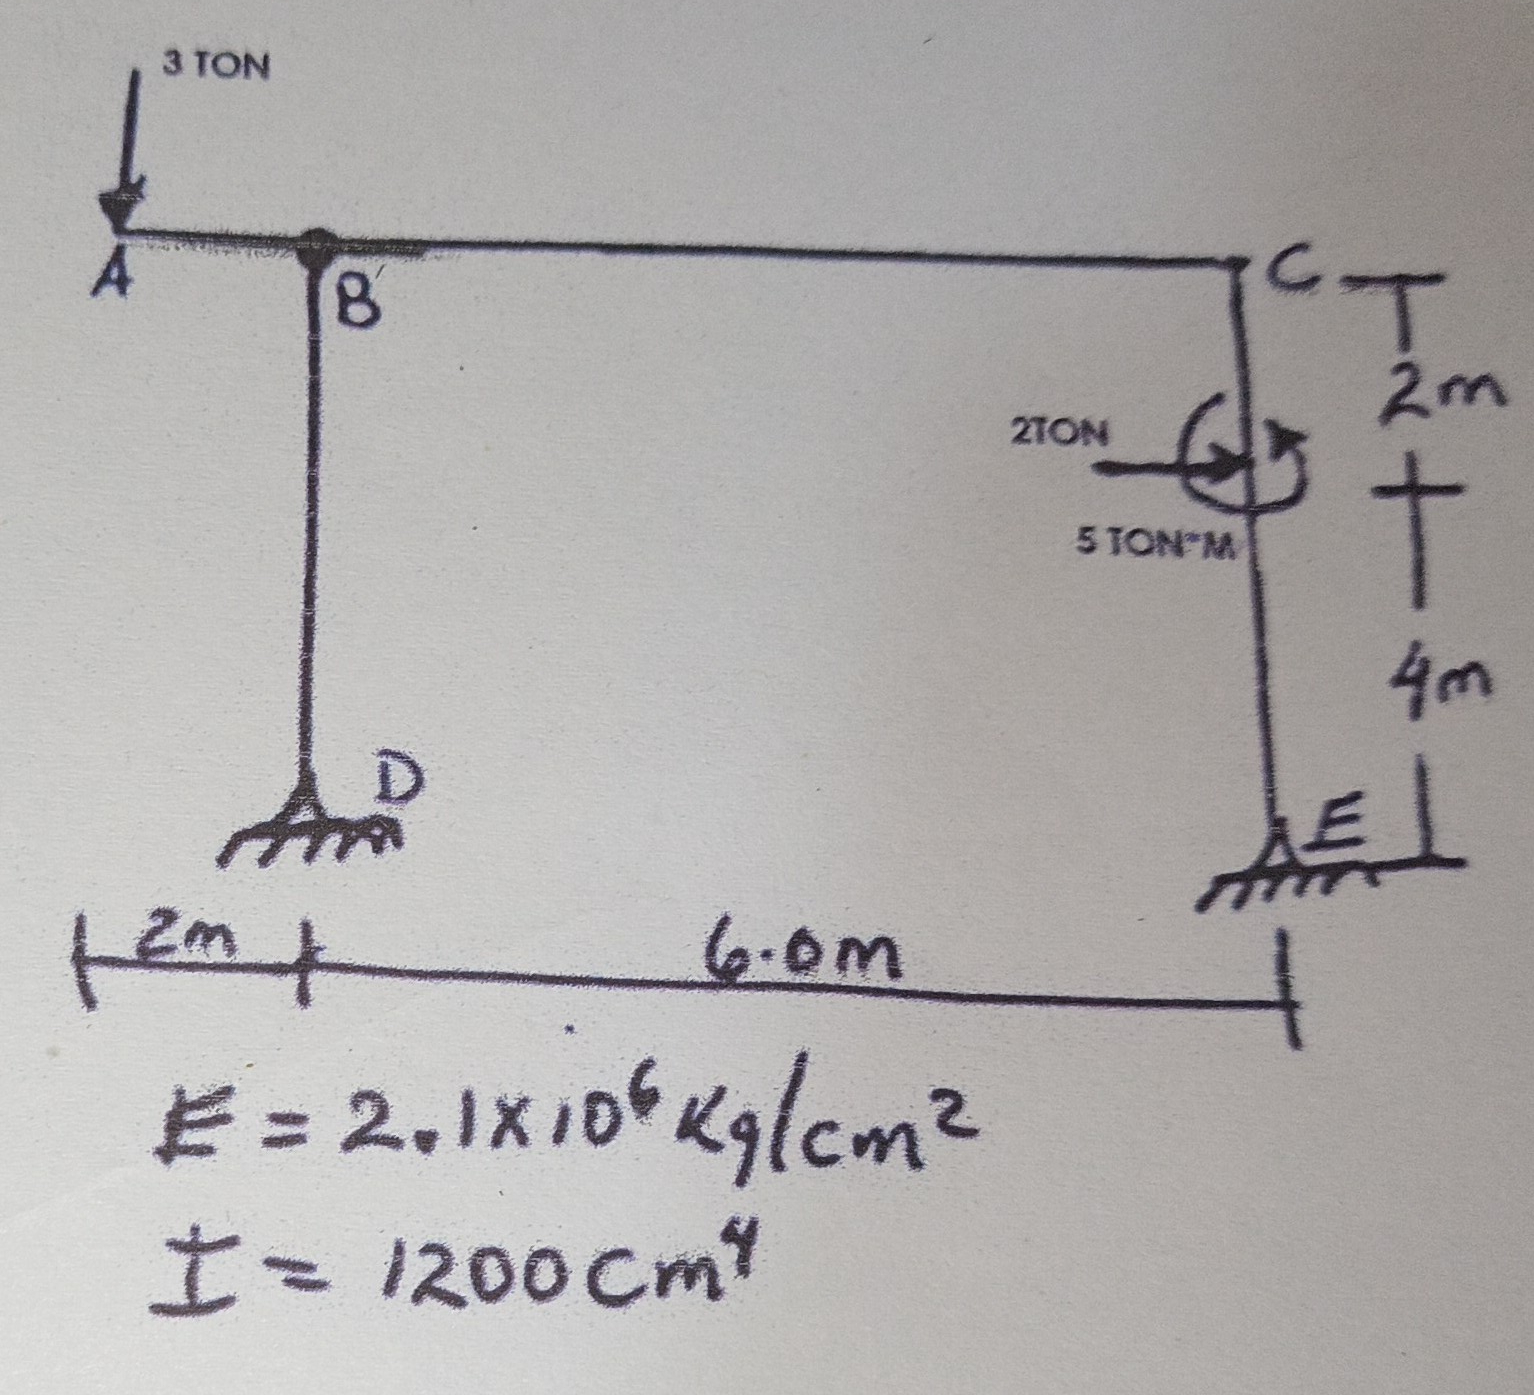 3 TON
A
B
C
2m
2TON
5 TON*M
4m
D
E
2m
6.0m
E = 2.1x10⁶ Kg/cm²
I = 1200cm⁴